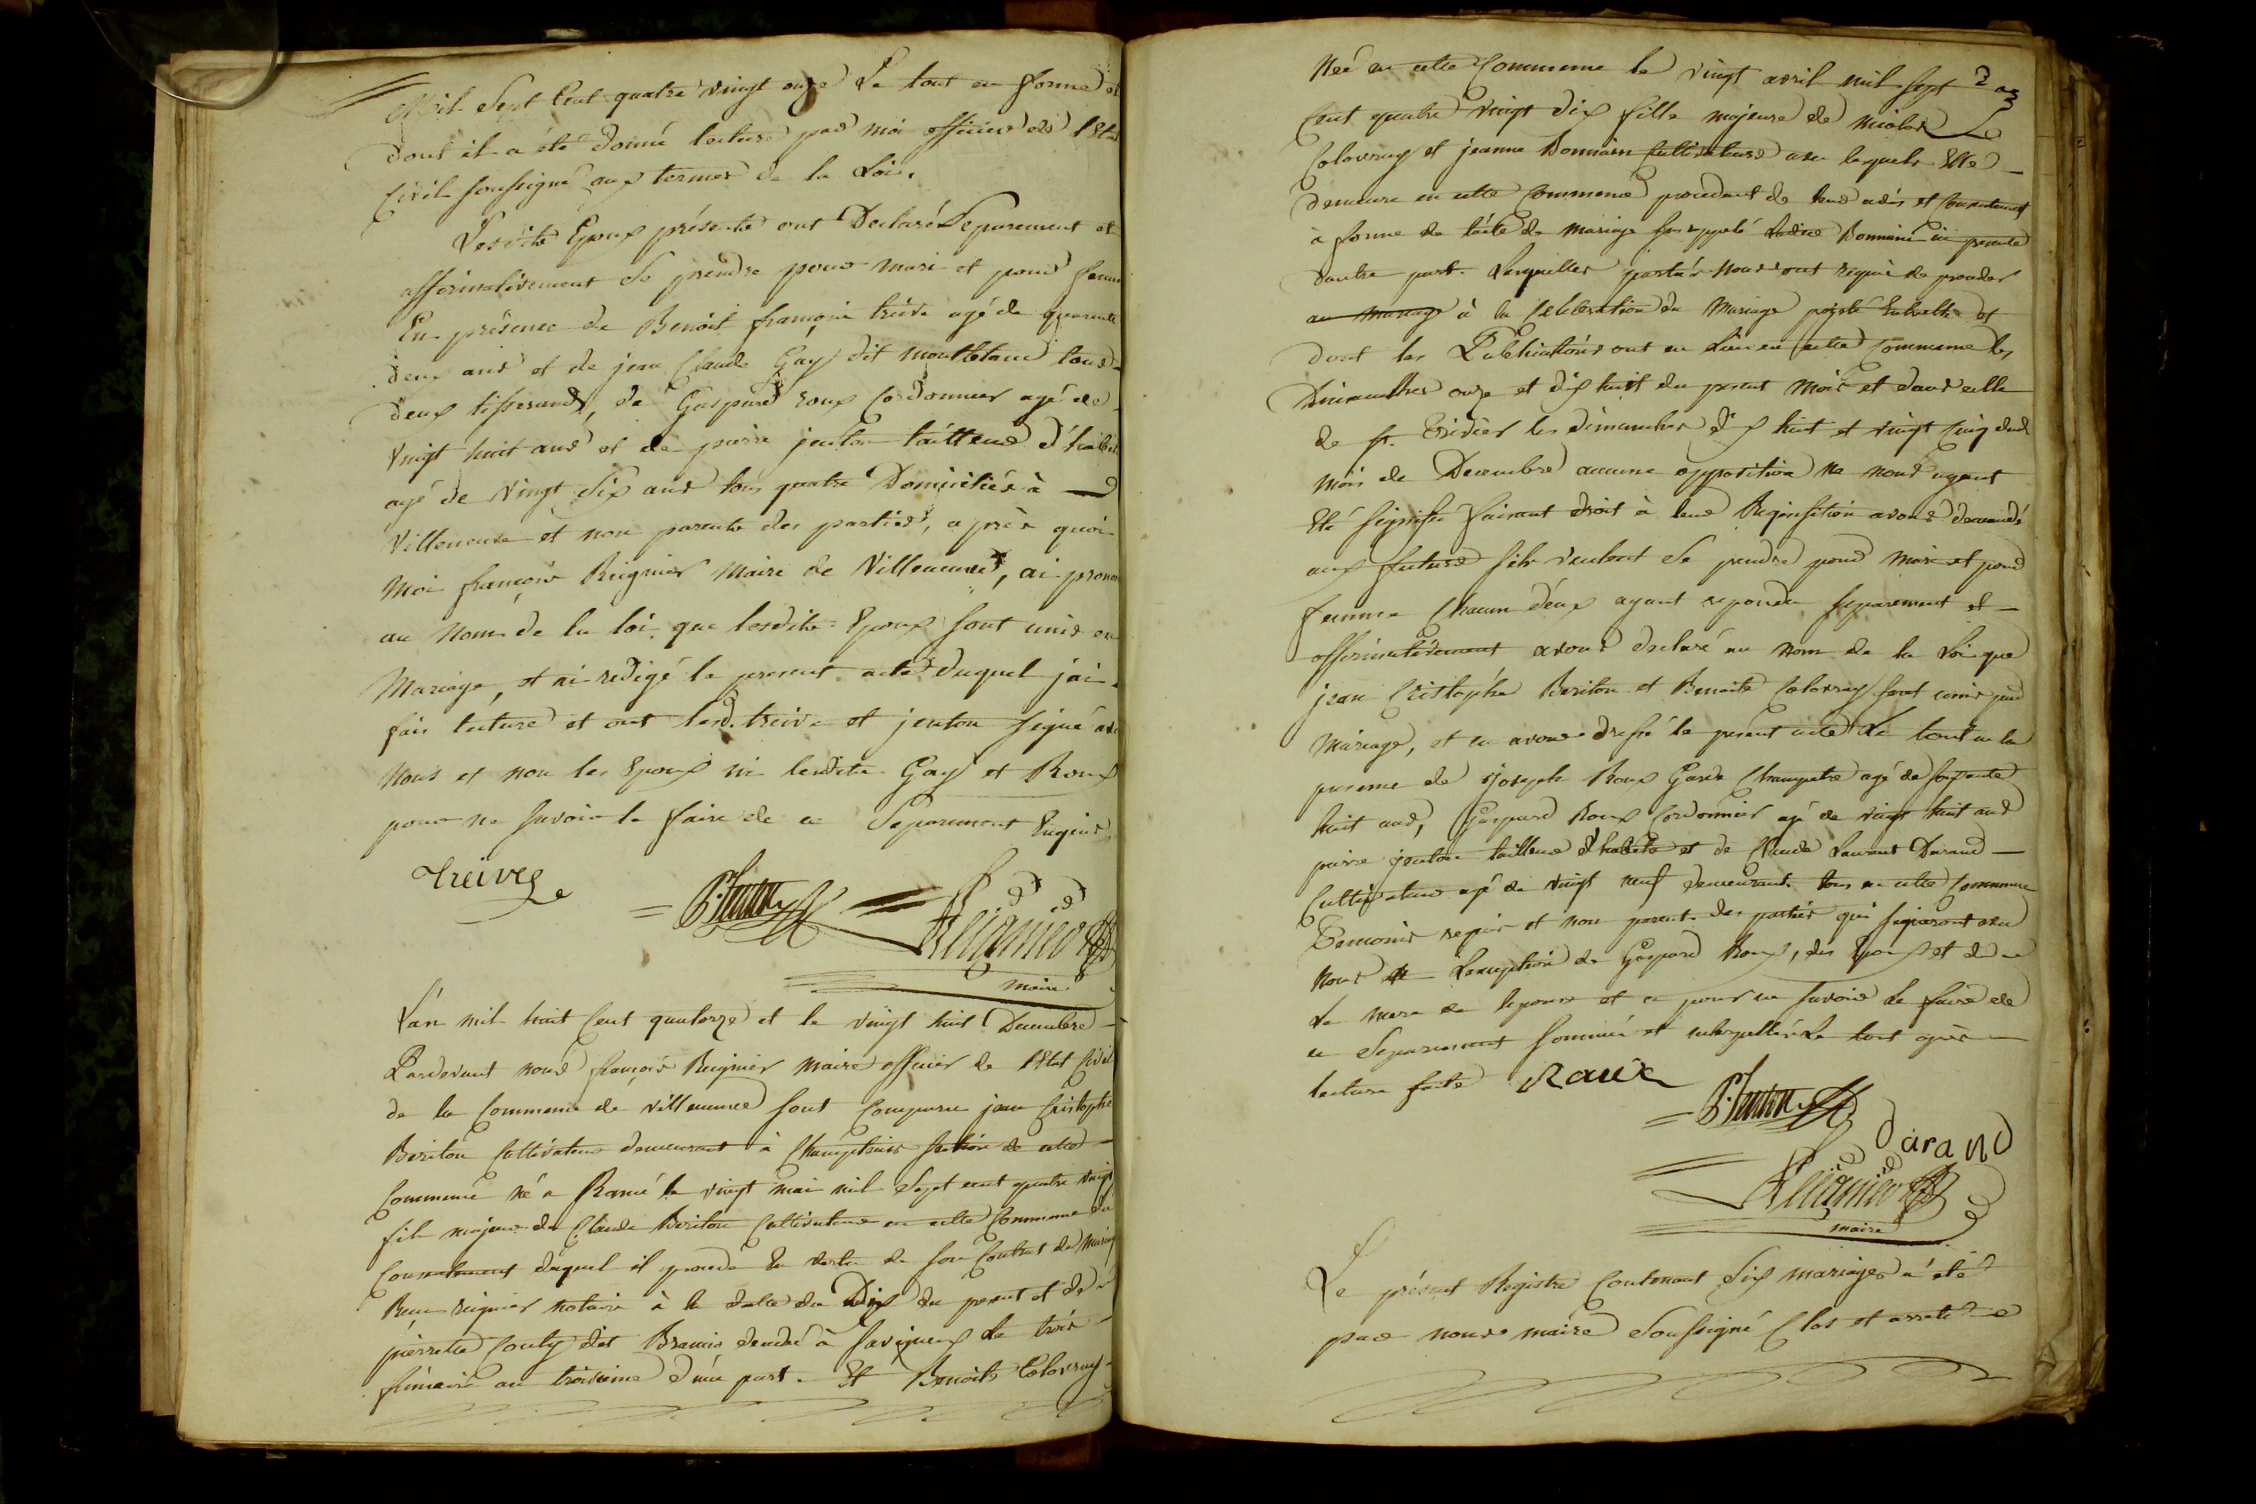 Mil Sept Cent quatre vingt onze Le tout en forme et
dont il a été donné lecture par moi officier de l'Etat
Civil soussigné aux termes de la Loi.
Lesdits Epoux présents ont Declaré Séparement et
affirmativement Se prendre pour mari et pour femme
En présence de Benoit françois treive agé de quarante
deux ans et de jean Claude Gay dit montblanc tous
deux tisserands, de Gaspard roux Cordonnier agé de
vingt huit ans et de pierre jenton tailleur d'habits
agé de vingt Six ans tous quatre Domiciliés à
Villeneuve et non parents des parties, après quoi
Moi françois Reignier Maire de Villeneuve, ai prononcé
au Nom de la loi que lesdits Epoux sont unis en
Mariage, et ai redigé le present acte duquel j'ai
fait lecture et ont lesd. treive et jenton signé avec
Nous et non les Epoux ni lesdits Gay et Roux
pour ne savoir le faire de ce Separement Requis
treive
P. Jenton
Reignier
maire
L'an mil huit Cent quatorze et le vingt huit Decembre
Pardevant nous françois Reignier Maire officier de l'Etat Civil
de la Commune de villeneuve sont Comparu jean Cristophe
Beriton Cultivateur demeurant à Champteins section de cette
Commune né a Rancé le vingt mai mil Sept cent quatre vingt
fils majeur de Claude Beriton Cultivateur en cette Commune du
Consentement duquel il procede En vertu de son Contrat de Mariage
Reçu reignier notaire à la datte du Dix du present et de
pierrette Couty dit Bramis decedé à Savigneux le trois
frimaire an troisieme d'une part. Et Benoite Colovray
2 03
Née en cette Commune le vingt avril mil sept
Cent quatre vingt Dix fille majeure de nicolas
Colovray et jeanne Bonnain Cultivateurs avec lesquels Elle
demeure en cette Commune procedant de leurs avis et Consentement
à forme de l'acte de Mariage sus rappelé Ladite Bonnain ici presente
d'autre part. Lesquelles parties Nous ont requis de proceder
au mariage à la Celebration du Mariage projeté Entr'elles et
dont les Publications ont eu Lieu en cette Commune les
Dimanches onze et dix huit du present Mois et dans celle
de st. Trivier les dimanches dix huit et vingt Cinq dud
mois de Decembre aucune opposition Ne nous ayant
Eté signifié faisant droit à leur Requisition avons demandé
aux futurs s'ils veulent Se prendre pour Mari et pour
femme Chacun d'eux ayant repondu séparement et
affirmativement avons declaré au Nom de la Loi que
jean Cristophe Beriton et Benoite Colovray sont unis par
Mariage, et en avons dressé le present acte Le tout en la
presence de joseph Roux Garde Champetre agé de soixante
huit ans, Gaspard Roux Cordonnier agé de vingt huit ans
pierre jenton tailleur d'habits et de Claude Laurent Durand
Cultivateur agé de vingt neuf demeurants tous en cette Commune
Temoins requis et non parents des parties qui signeront avec
Nous L'exception de Gaspard Roux, des Epoux et de
La mere de l'epouse et ce pour ne savoir le faire de
ce Separement sommés et interpellés Le tout après
lecture faite Raux
P. Jenton
Darand
Reignier
maire
Le présent Registre Contenant Six mariages a été
par nous maire Soussigné Clos et arreté